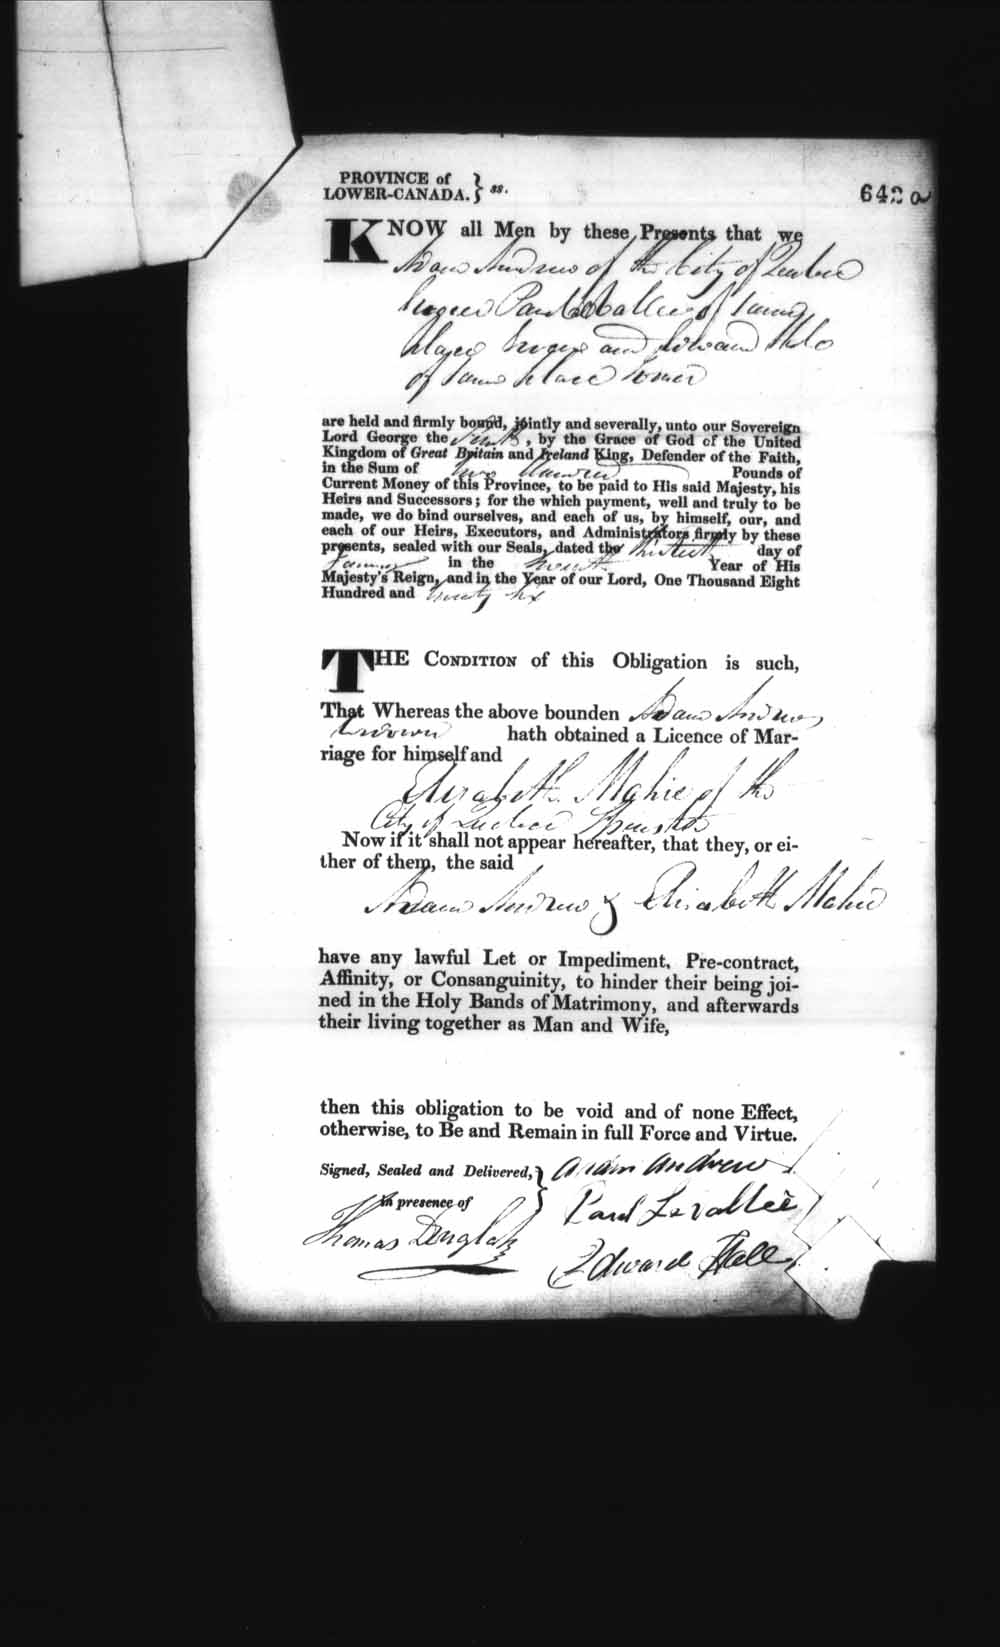 PROVINCE of
LOWER-CANADA. } ss.
642 a
KNOW all Men by these Presents that we
Adam Andrew of the City of Quebec
Paul Levallee of same
place and Edward Hale
of same place
are held and firmly bound, jointly and severally, unto our Sovereign
Lord George the Fourth, by the Grace of God of the United
Kingdom of Great Britain and Ireland King, Defender of the Faith,
in the Sum of Two Hundred Pounds of
Current Money of this Province, to be paid to His said Majesty, his
Heirs and Successors; for the which payment, well and truly to be
made, we do bind ourselves, and each of us, by himself, our, and
each of our Heirs, Executors, and Administrators firmly by these
presents, sealed with our Seals, dated the day of
January in the Year of His
Majesty's Reign, and in the Year of our Lord, One Thousand Eight
Hundred and twenty six
THE CONDITION of this Obligation is such,
That Whereas the above bounden Adam Andrew
hath obtained a Licence of Mar-
riage for himself and
Elizabeth Mahie of the
City of Quebec Spinster
Now if it shall not appear hereafter, that they, or ei-
ther of them, the said
Adam Andrew & Elizabeth Mahie
have any lawful Let or Impediment, Pre-contract,
Affinity, or Consanguinity, to hinder their being joi-
ned in the Holy Bands of Matrimony, and afterwards
their living together as Man and Wife,
then this obligation to be void and of none Effect,
otherwise, to Be and Remain in full Force and Virtue.
Signed, Sealed and Delivered, } Adam Andrew
in presence of Paul Levallée
Thomas Douglas
Edward Hall